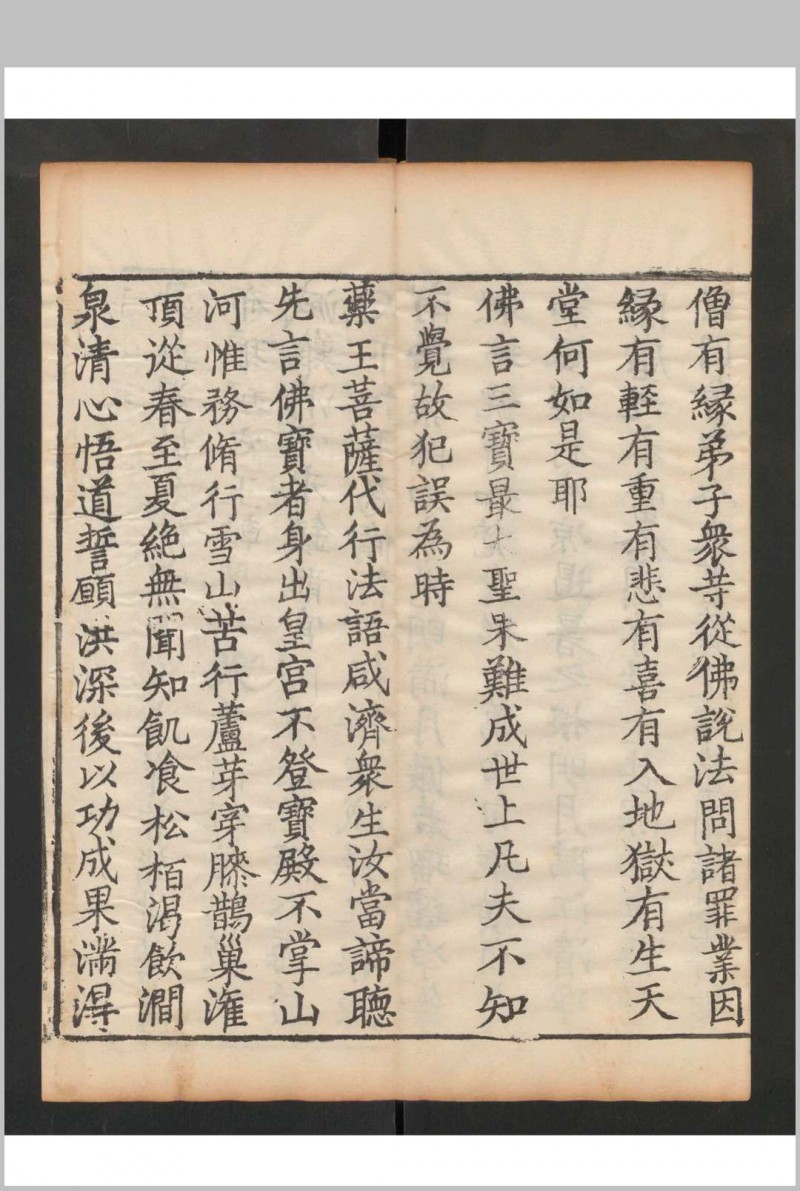 僧有緣弟子衆䓁從佛說法問諸罪業因
緣有輕有重有悲有喜有入地獄有生天
堂何如是耶
佛言三寶最大聖果難成世上凡夫不知
不覺故犯誤為時
藥王菩薩代行法語咸濟衆生汝當諦聽
先言佛寶者身出皇宮不登寶殿不掌山
河惟務脩行雪山苦行蘆芽穿膝鵲巢潅
頂從春至夏絶無聞知飢飡松栢渴飲澗
泉清心悟道誓願洪深後以功成果滿得